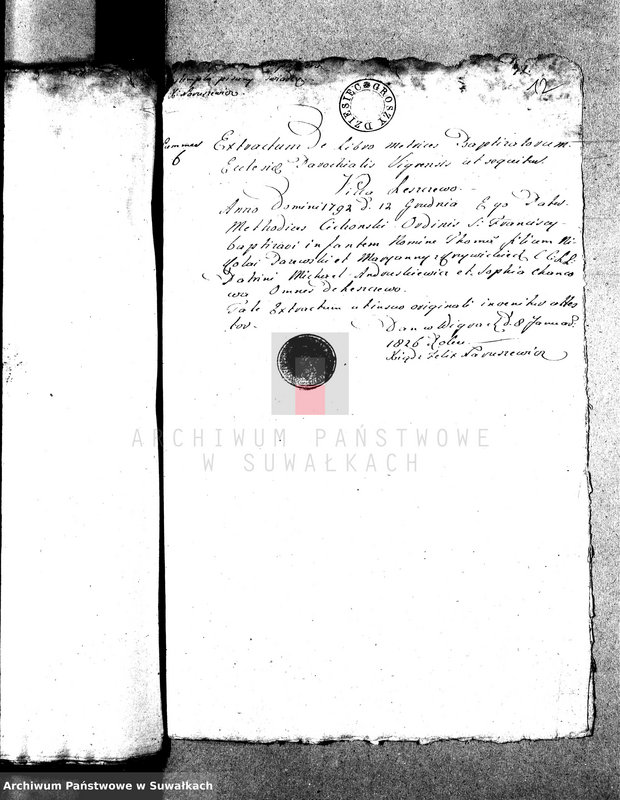 12
DZIESIĘC GROSZY
6
Extractum de Libro metrices Baptizatorum
Ecclesiæ Parochialis Vigrensis ut sequitur.
Villa Leszczewo.
Anno Domini 1792 d. 12 Grudnia Ego Pater
Methodius Cichonski Ordinis S: Francisci
baptizavi infantem Nomine Thomæ filium Ni-
colai Daszewski et Maryanny C.C.L.L.
Patrini Michael Andruszkiewicz et Sophia
Omnes de Leszczewo.
Tale Extractum uti in suo originali invenitur attes-
tor.
Dan w Wigrach d. 8 Januar.
1826 Roku.
Xiądz Felix Naruszewicz
ARCHIWUM PAŃSTWOWE
W SUWAŁKACH
Archiwum Państwowe w Suwałkach